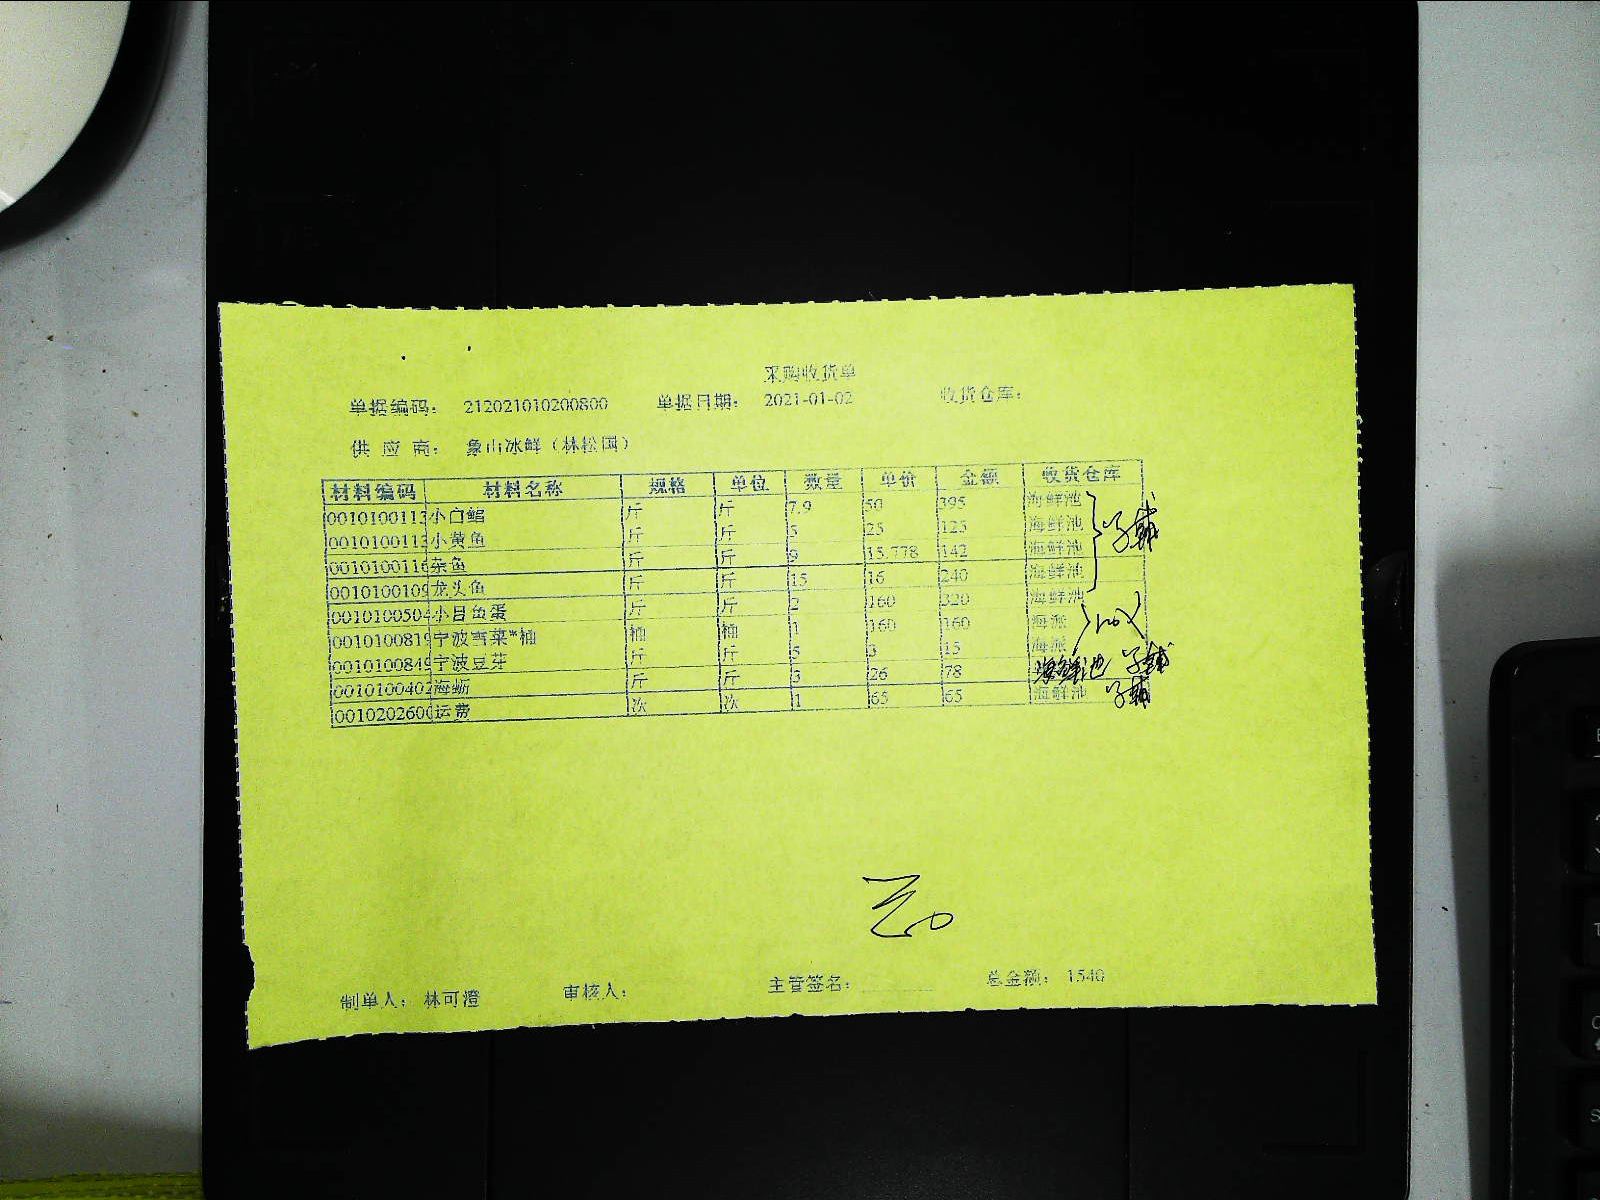 采购收货单
单据编码： 212021010200800 单据日期： 2021-01-02 收货仓库：
供 应 商： 象山冰鲜（林松国）
材料编码 材料名称 规格 单位 数量 单价 金额 收货仓库
0010100113 小白鲳 斤 斤 7.9 50 395 海鲜池
0010100113 小黄鱼 斤 斤 5 25 125 海鲜池
0010100116 杂鱼 斤 斤 9 15.778 142 海鲜池
0010100109 龙头鱼 斤 斤 15 16 240 海鲜池
0010100504 小目鱼蛋 斤 斤 2 160 320 海鲜池
0010100819 宁波雪菜*桶 桶 桶 1 160 160 海派
0010100849 宁波豆芽 斤 斤 5 3 15 海派
0010100402 海蛎 斤 斤 3 26 78 海鲜池
0010202600 运费 次 次 1 65 65 海鲜池
制单人： 林可澄 审核人： 主管签名： 总金额： 1540